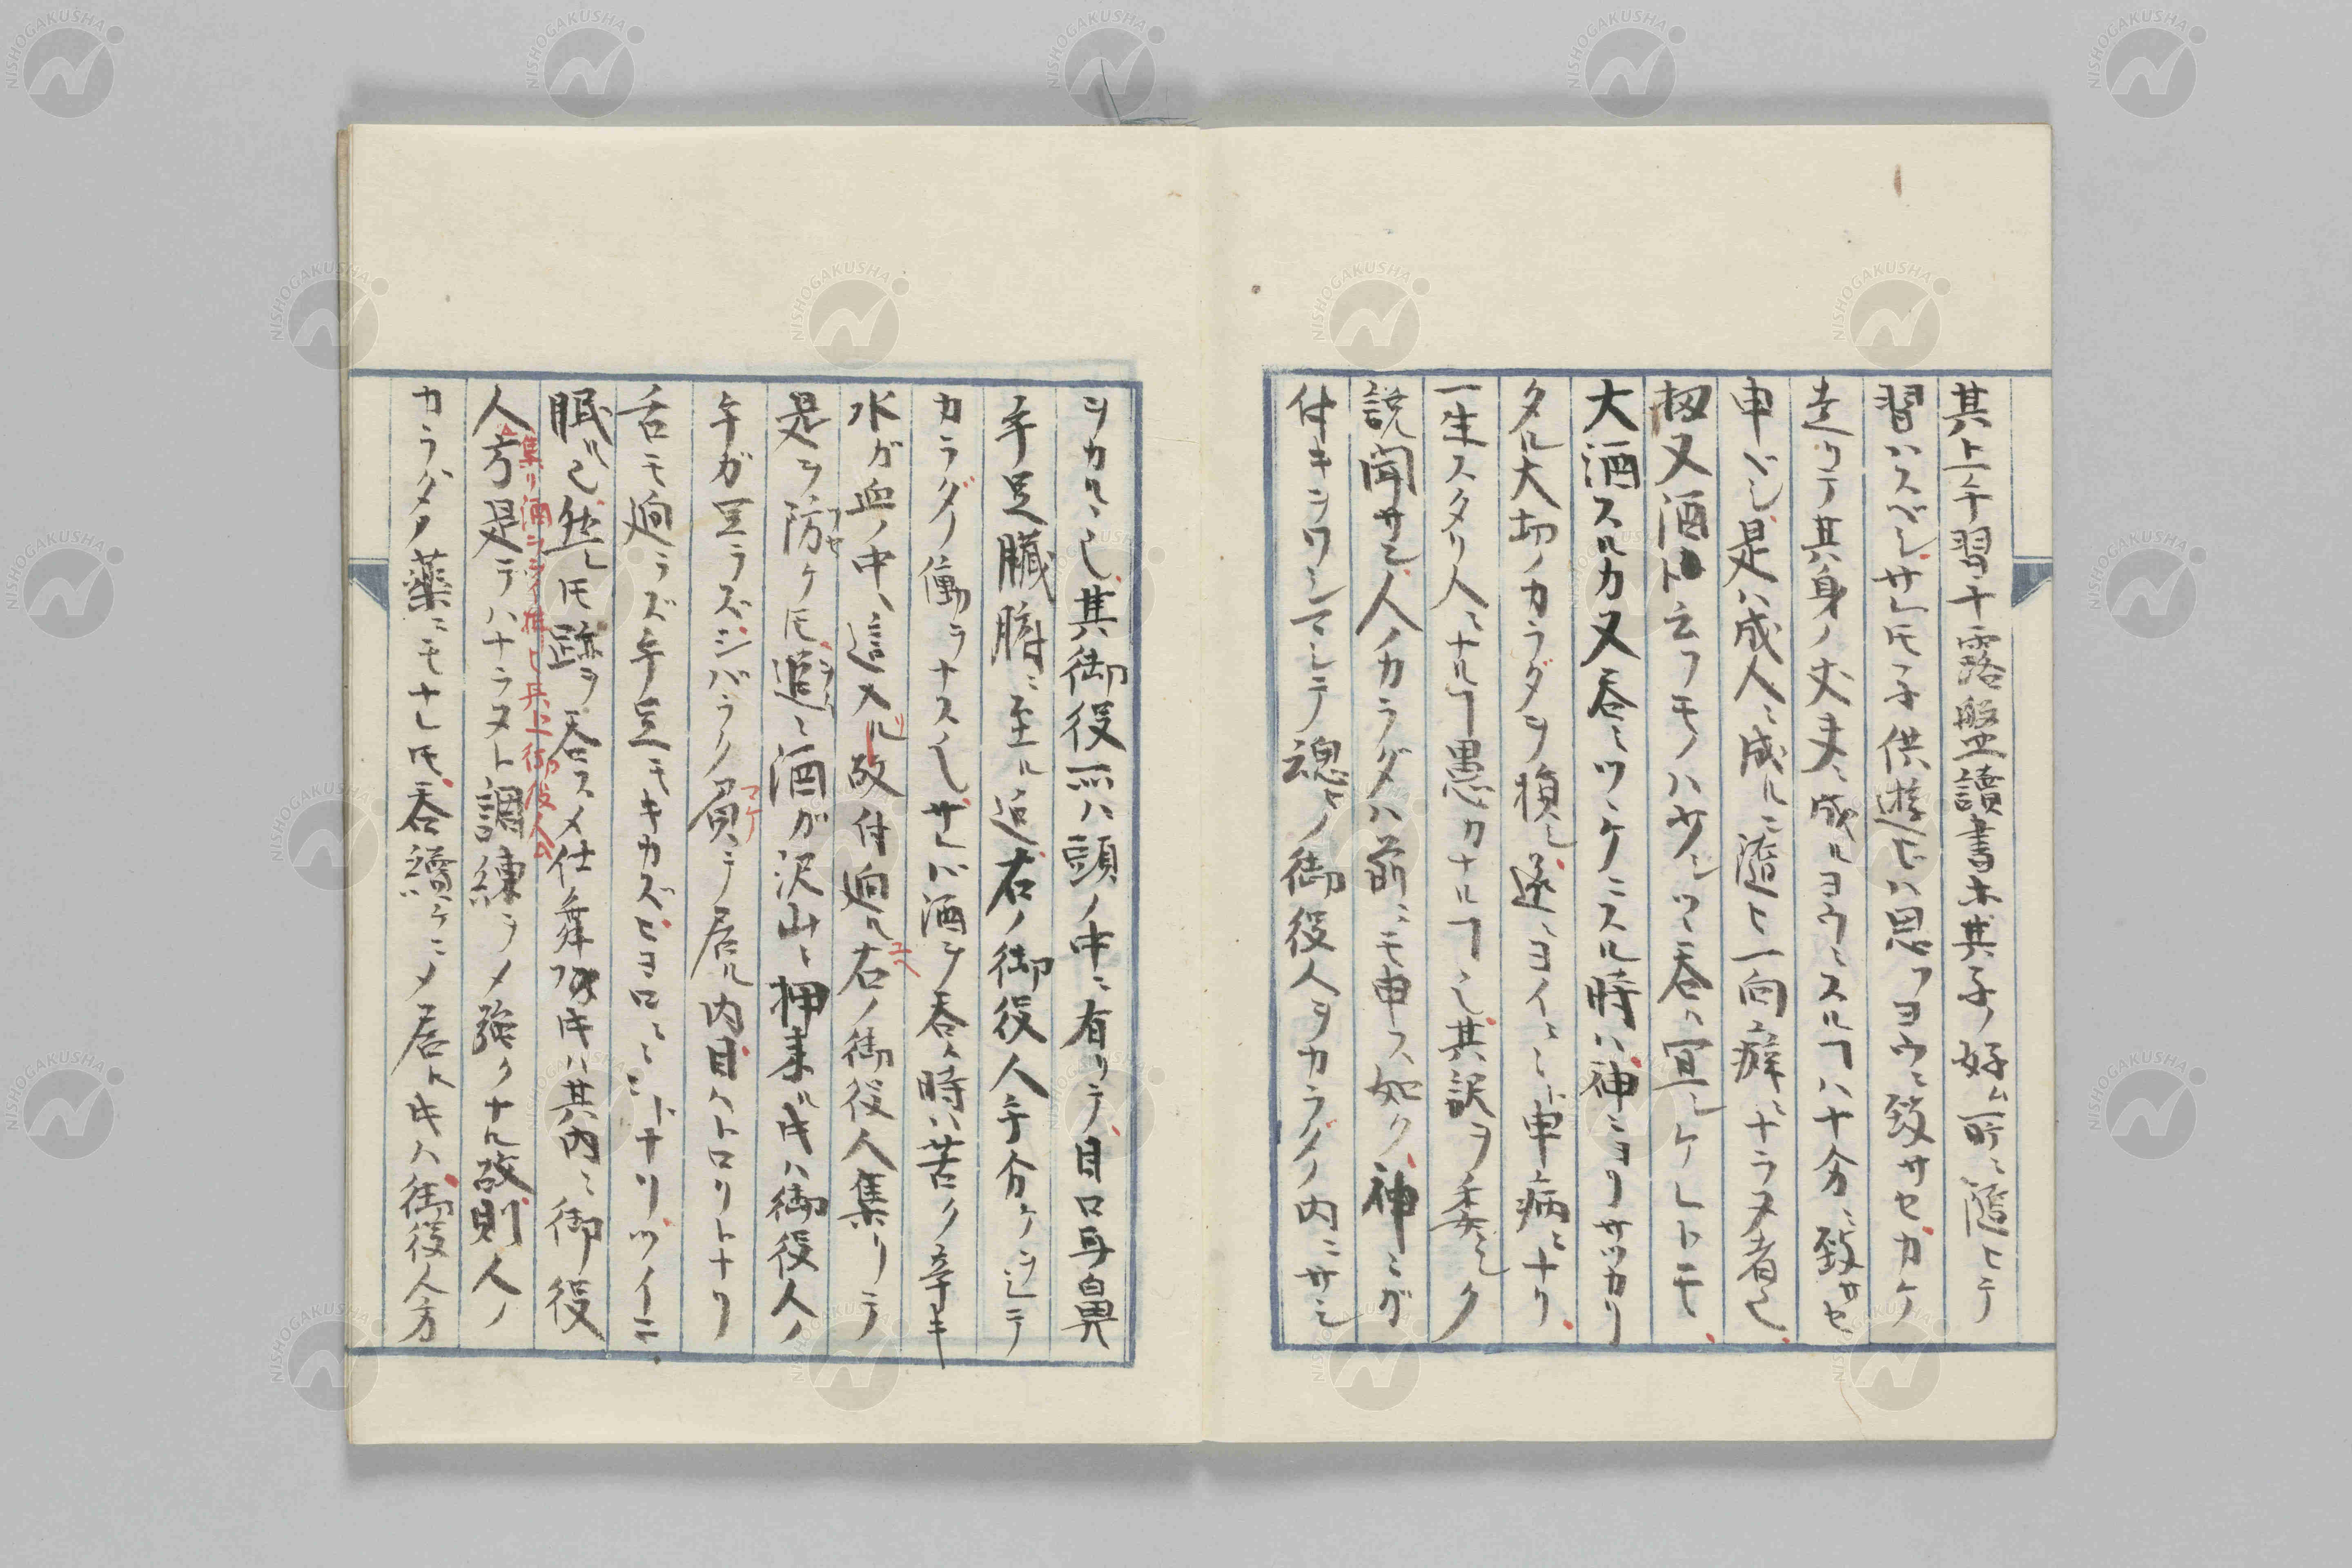 其上手習十露盤讀書共其子ノ好ム所ニ隨ヒテ
習ハスベシサレ𪜈子供遊ビハ思フヨウニ致サセカケ
走リテ其身ノ丈夫ニ成ルヨウニスルヿハ十分ニ致サセ
申ベシ是ハ成人ニ成ルニ隨ヒ一向癖ニナラヌ者也
扨又酒ト云フモノハ少シツヽ呑ハ宜シケレトモ
大酒スルカ又呑ミツヾケニスル時ハ神ヨリサツカリ
タル大切ノカラダヲ損シ遂ニヨイ〳〵ト申病ニナリ
一生スタリ人ニナルヿ愚カナルヿ也其訳ヲ委シク
説聞サン人ノカラダハ前ニモ申ス如ク神ミガ
付キシワシマシテ魂ノ御役人ヲカラダノ内ニサシ
ヲカル也其御役所ハ頭ノ中ニ有リテ目口耳鼻
手足臓腑ニ至ル迄右ノ御役人手分ケシテ
カラダノ働ラナス也サレハ酒ヲ呑ム時ハ苦ク辛キ
水ガ血ノ中ヘ這入リ故付廻ル右ノ御役人集リテ
是ヲ防ケ𪜈追々酒ガ沢山ニ押来ル时ハ御役人ノ
手ガ足ラズシバラク負テ居ル内目ハトロリトナリ
舌モ廻ラズ手足モキカズヒヨロ〳〵トナリツイニ
眠ル也然レ𪜈跡ヲ呑ズメ仕舞时ハ其内ニ御役
集リ酒ヲシイ推ヒ其上御役人公
人方是テハナラヌト調練ヲメ強クナル故則人ノ
カラダノ薬ニモナレ𪜈呑續ケニメ居ト时ハ御役人方